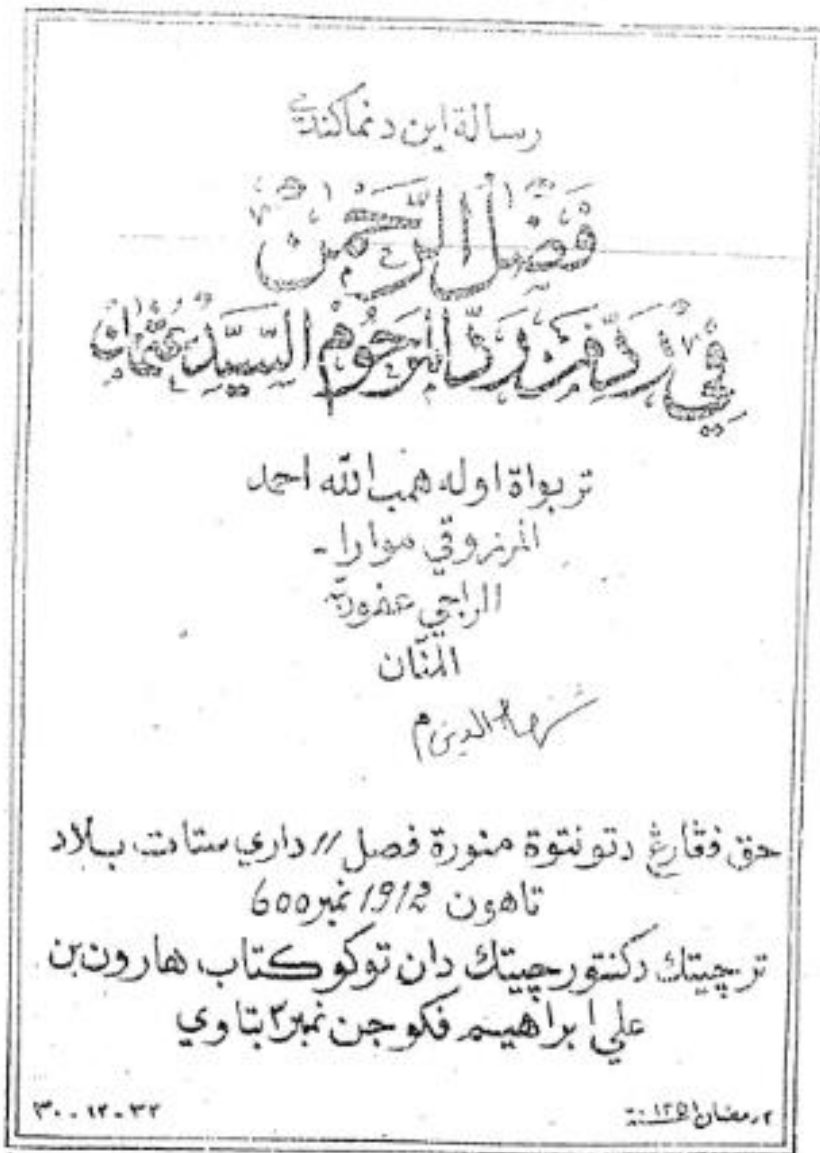 رسالة اين دنماكندي
فَضْلُ الرَّحْمٰن
فِي رَدِّ مَنْ رَدَّ المَرْحُوْم السَّيِّد عُثْمَان
تربواة اوله همب الله احمد
المرزوقي موارا -
الراجي عفو ربه
المنّان
حق فڠارڠ دتونتوة منورة فصل // داري ستات بلاد
تاهون 1912 نمبر 600
ترچيتك دكنتور چيتك دان توكو كتاب هارون بن
علي ابراهيم فكوجن نمبر ٢ بتاوي
٣٠-١٢-٣٢
٢ رمضان سنة ١٣٥١